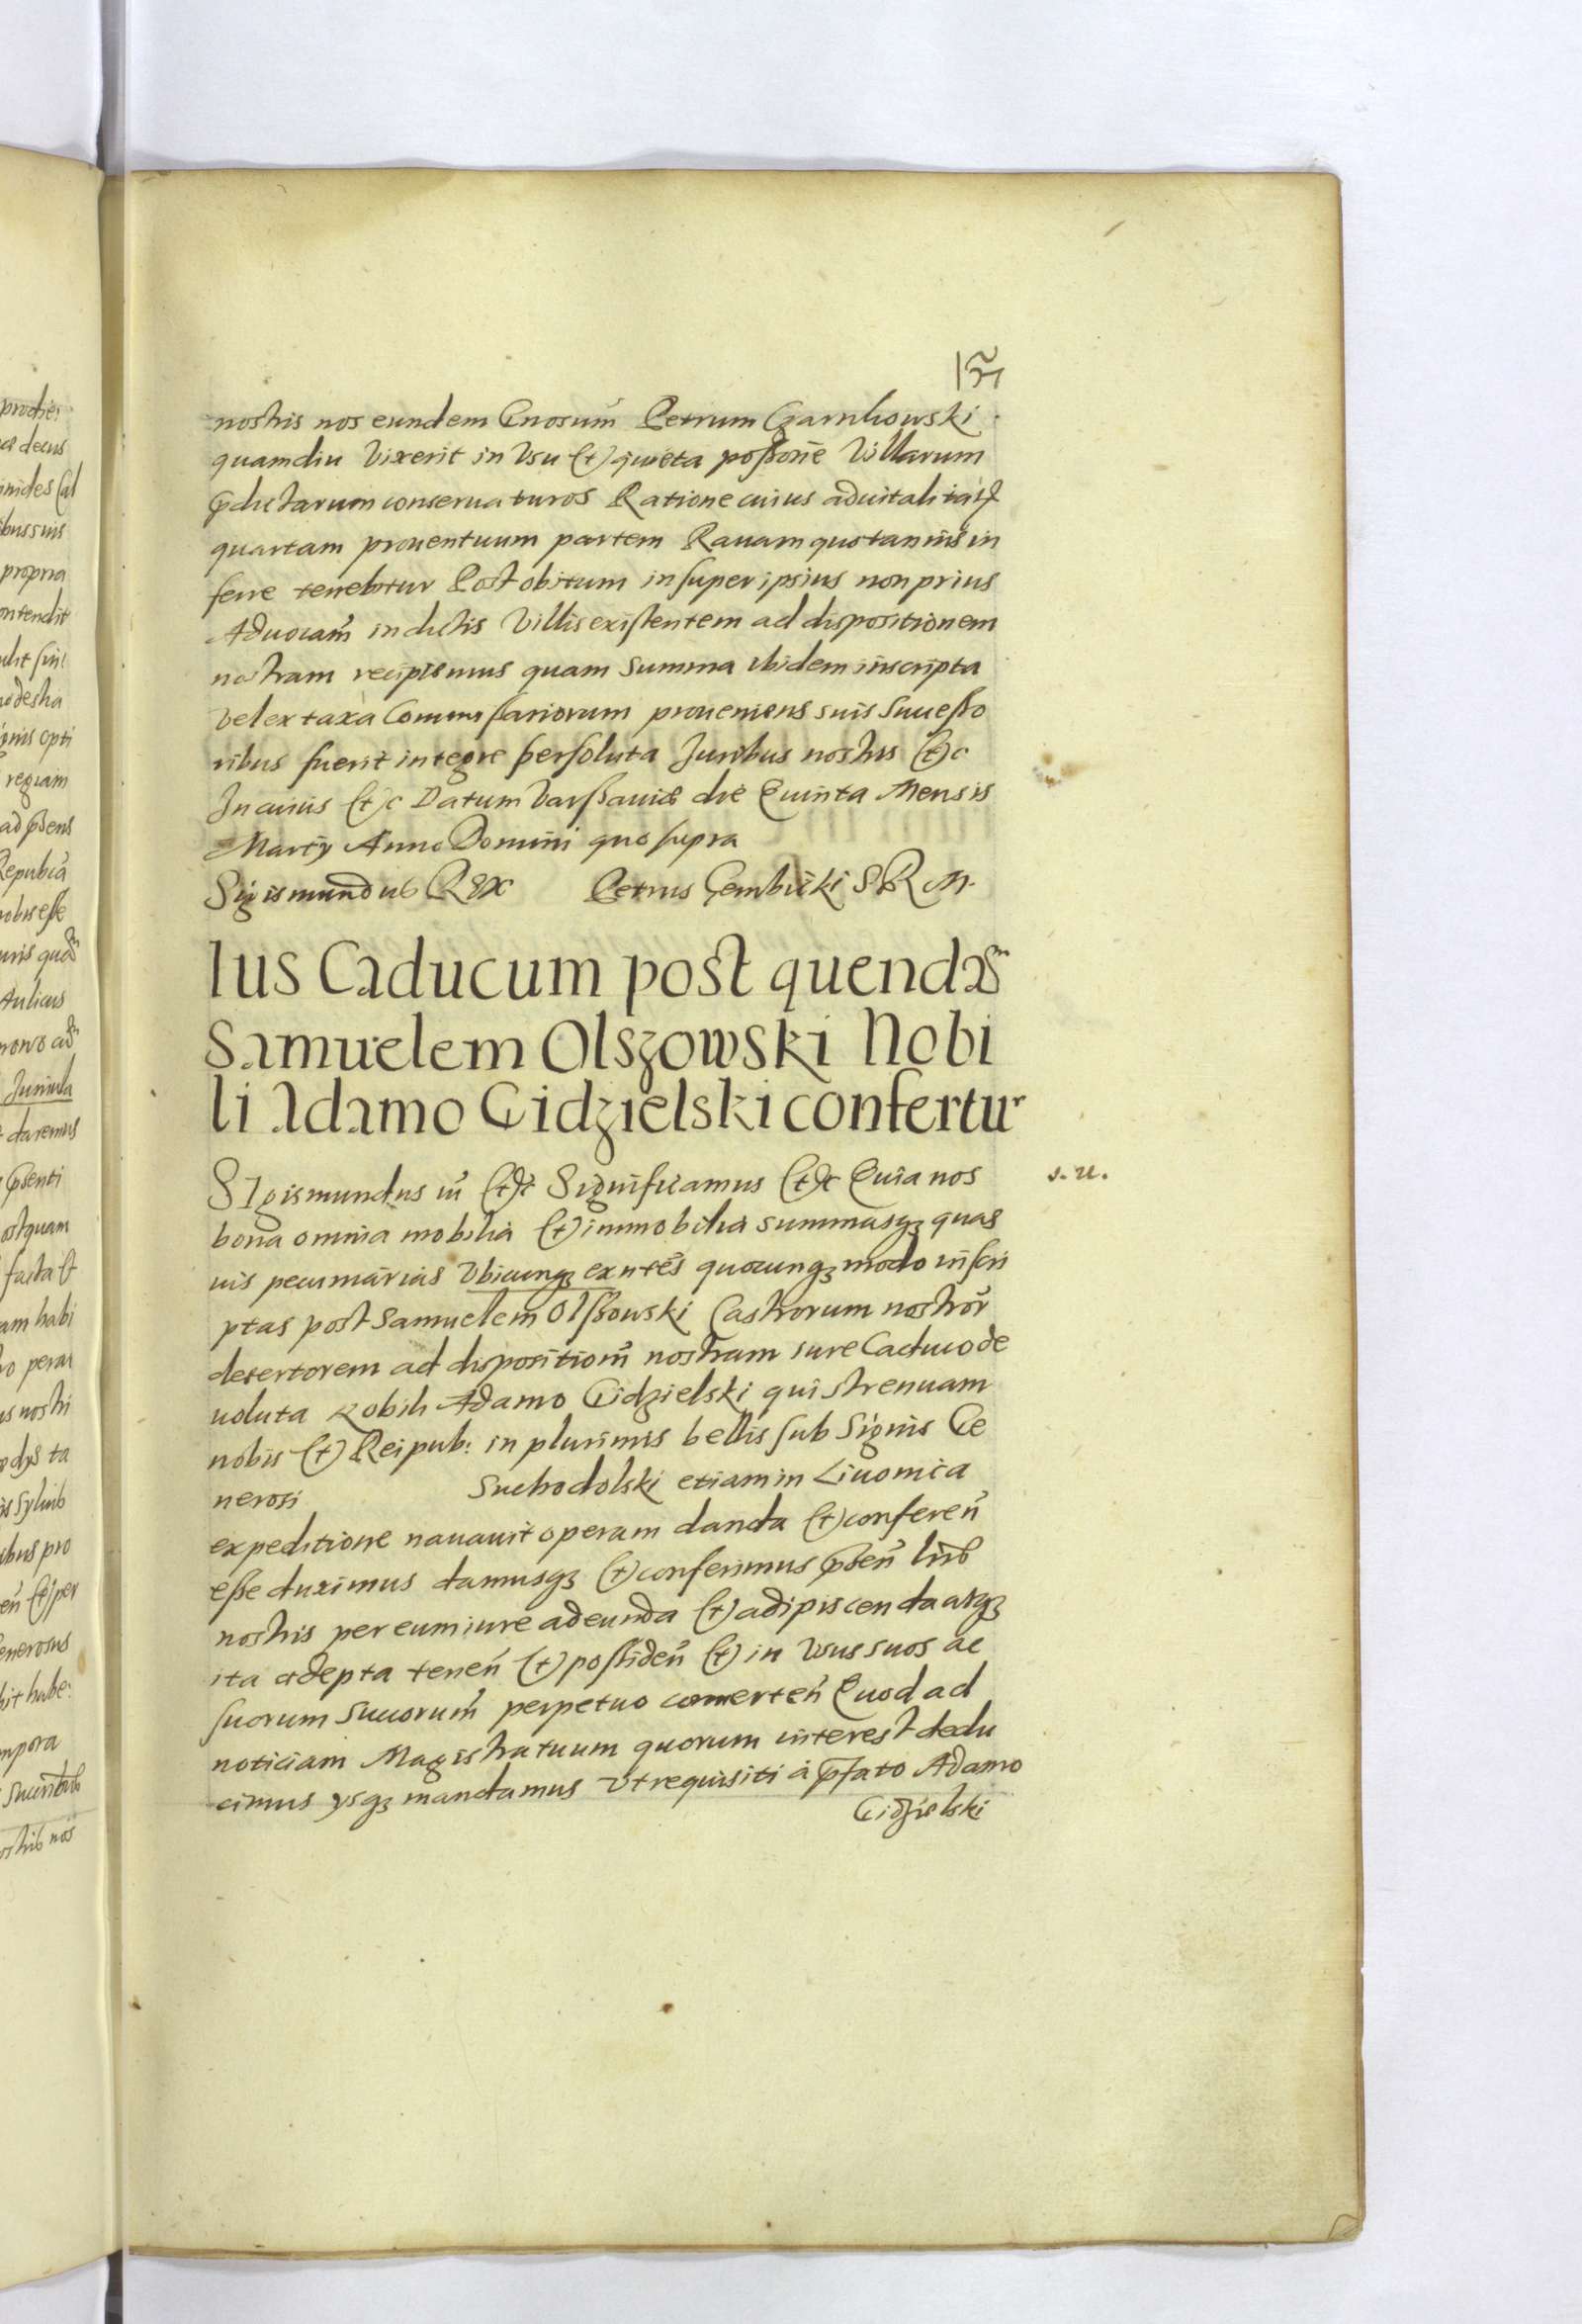 nostris nos eundem Gnosum̄ Petrum Czarnkowski
quamdiu Vixerit in Vsu et quieta possone Villarum
pdictarum conseruaturos Ratione cuius aduitalitatis
quartam prouentuum partem Rauam quotannis in
ferre tenebitur Post obitum insuper ipsius non prius
Aduocam̄ in dictis Villis existentem ad dispositionem
nostram recipiemus quam Summa ibidem inscripta
Vel ex taxa Commissariorum proueniens suis Successo
ribus fuerit integre persoluta Juribus nostris etc
In cuius etc Datum Varssauiæ die Quinta Mensis
Martij Anno Domini quo supra
Sigismundus Rex Petrus Gembicki S R M.
Ius Caducum post quendam
Samuelem Olszowski Nobi
li Adamo Gidzielski confertur
SIgismundus iii etc Significamus etc Quia nos
s. u.
bona omnia mobilia et immobilia summasqꝫ quas
uis pecuniarias Vbicunqꝫ exntes quocunqꝫ modo inscri
ptas post Samuelem Olssowski Castrorum nostror̄
desertorem ad dispositiom̄ nostram iure Caduco de
uoluta Nobili Adamo Gidzielski qui strenuam
nobis et Reipub: in plurimis bellis sub Signis Ge
nerosi Suchodolski etiam in Liuonica
expeditione nauauit operam danda et conferen̄
esse duximus damusqꝫ et conferimus pn̄sen̄ lr̄ib
nostris per eum iure adeunda et adipiscenda atqꝫ
ita adepta tenen̄ et possiden̄ et in Vsus suos ac
suorum Succorum̄ perpetuo conuerten̄ Quod ad
noticiam Magistratuum quorum interest dedu
cimus ysqꝫ mandamus Vt requisiti à pfato Adamo
Gidzielski